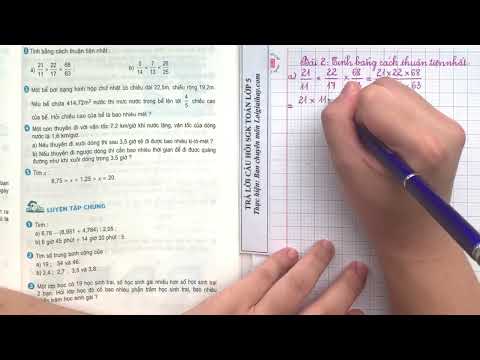 2 Tính bằng cách thuận tiện nhất :
a) 21/11 × 22/17 × 68/63 b) 5/14 × 7/13 × 26/25
3 Một bể bơi dạng hình hộp chữ nhật có chiều dài 22,5m, chiều rộng 19,2m.
Nếu bể chứa 414,72m³ nước thì mực nước trong bể lên tới 4/5 chiều cao
của bể. Hỏi chiều cao của bể là bao nhiêu mét ?
4 Một con thuyền đi với vận tốc 7,2 km/giờ khi nước lặng, vận tốc của dòng
nước là 1,6 km/giờ.
a) Nếu thuyền đi xuôi dòng thì sau 3,5 giờ sẽ đi được bao nhiêu ki-lô-mét ?
b) Nếu thuyền đi ngược dòng thì cần bao nhiêu thời gian để đi được quãng
đường như khi xuôi dòng trong 3,5 giờ ?
5 Tìm x :
8,75 × x + 1,25 × x = 20.
LUYỆN TẬP CHUNG
1 Tính :
a) 6,78 – (8,951 + 4,784) : 2,05 ;
b) 6 giờ 45 phút + 14 giờ 30 phút : 5.
2 Tìm số trung bình cộng của :
a) 19 ; 34 và 46.
b) 2,4 ; 2,7 ; 3,5 và 3,8.
3 Một lớp học có 19 học sinh trai, số học sinh gái nhiều hơn số học sinh trai
2 bạn. Hỏi lớp học đó có bao nhiêu phần trăm học sinh trai, bao nhiêu
phần trăm học sinh gái ?
TRẢ LỜI CÂU HỎI SGK TOÁN LỚP 5
Thực hiện: Ban chuyên môn Loigiaihay.com
Bài 2: Tính bằng cách thuận tiện nhất
a) 21/11 × 22/17 × 68/63 = 21 × 22 × 68
× 63
= 21 × 11